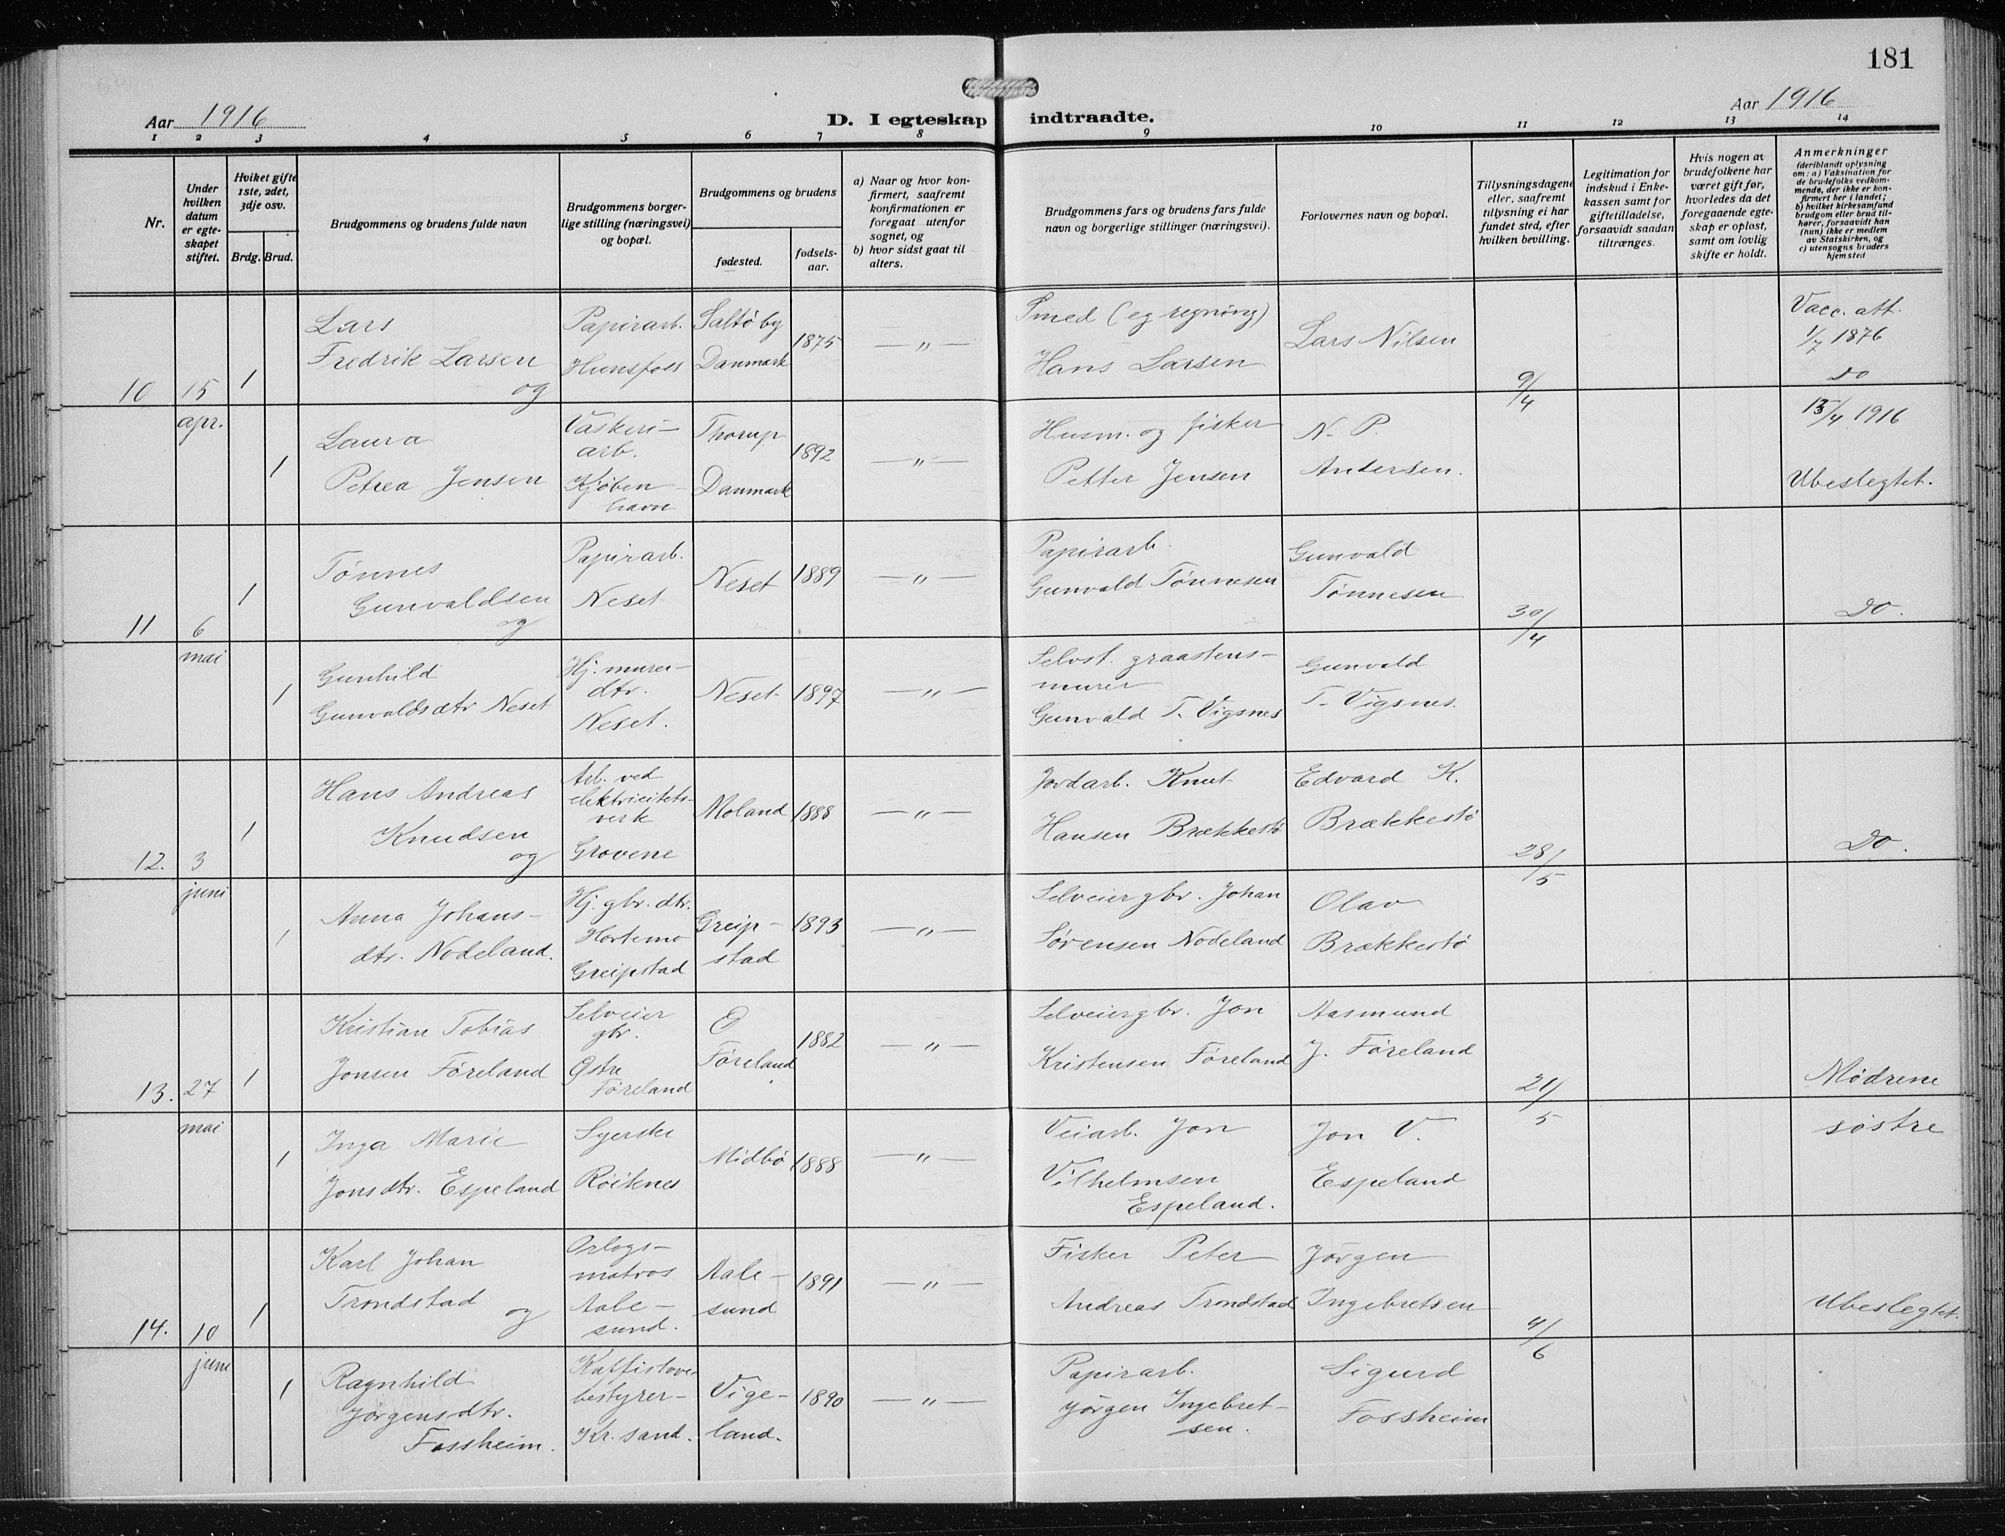 181
Aar 1916
D. I egteskap indtraadte.
Aar 1916
1 2 3 4 5 6 7 8 9 10 11 12 13 14
Nr.
Under hvilken datum er egteskapet stiftet.
Hviket gifte 1ste, 2det, 3dje osv.
Brdg. Brud.
Brudgommens og brudens fulde navn
Brudgommens borgerlige stilling (næringsvei) og bopæl.
Brudgommens og brudens
fødested.
fødselsaar.
a) Naar og hvor konfirmert, saafremt konfirmationen er foregaat utenfor sognet, og
b) hvor sidst gaat til alters.
Brudgommens fars og brudens fars fulde navn og borgerlige stillinger (næringsvei).
Forlovernes navn og bopæl.
Tillysningsdagene eller, saafremt tillysning ei har fundet sted, efter hvilken bevilling.
Legitimation for indskud i Enkekassen samt for giftetilladelse, forsaavidt saadan tiltrænges.
Hvis nogen av brudefolkene har været gift før, hvorledes da det foregaaende egteskap er opløst, samt om lovlig skifte er holdt.
Anmerkninger
(deriblandt oplysning om: a) Vaksination for de brudefolks vedkommende, der ikke er konfirmert her i landet; b) hvilket kirkesamfund brudgom eller brud tilhører, forsaavidt han (hun) ikke er medlem av Statskirken, og c) utensogns bruders hjemsted
10 15 apr. 1
Lars Fredrik Larsen og
Papirarb. Hunsfoss
Saltö by Danmark
1875
— " —
Smed (eg regning) Hans Larsen
Lars Nilsen
9/4
Vacc. att. 1/7 1876
Do
1
Laura Petrea Jensen
Vaskeriarb. Kjøbenhavn
Thorup Danmark
1892
— " —
Husm. og fisker Petter Jensen
N. P. Andersen.
15/4 1916
Ubeslegtet.
11 6 mai 1
Tønnes Gunvaldsen og
Papirarb. Neset
Neset
1889
— " —
Papirarb. Gunvald Tønnesen
Gunvald Tønnesen
30/4
Do.
1
Gunhild Gunvaldsdtr Neset
Hj. murerdtr. Neset.
Neset
1897
— " —
Selvst. graastensmurer Gunvald T. Vigsnes
Gunvald T. Vigsnes.
12. 3 juni 1
Hans Andreas Knudsen og
Arb. ved elektricitetsverk Grovene
Moland
1888
— " —
Jordarb. Knut Hansen Brækkestø
Edvard K. Brækkestø
28/5
Do.
1
Anna Johansdtr. Nodeland.
Hj. gbr. dtr. Hortemo Greipstad
Greipstad
1893
— " —
Selveiergbr. Johan Sørensen Nodeland
Olav Brækkestø
13. 27 mai 1
Kristian Tobias Jonsen Føreland
Selveier gbr. Østre Føreland
Ø Føreland
1882
— " —
Selveiergbr. Jon Kristensen Føreland
Aasmund J. Føreland
21/5
Mødrene søstre
1
Inga Marie Jonsdtr. Espeland
Syerske Röiknes
Midbø
1888
— " —
Veiarb. Jon Vilhelmsen Espeland.
Jon V. Espeland
14. 10 juni 1
Karl Johan Trondstad og
Orlogsmatros Aalesund.
Aalesund
1891
— " —
Fisker Peter Andreas Trondstad
Jørgen Ingebretsen
4/6
Ubeslegtet.
1
Ragnhild Jørgensdtr. Fossheim.
Kaffistovebestyrer- Kr. sand.
Vigeland.
1890
— " —
Papirarb. Jørgen Ingebretsen.
Sigurd Fossheim